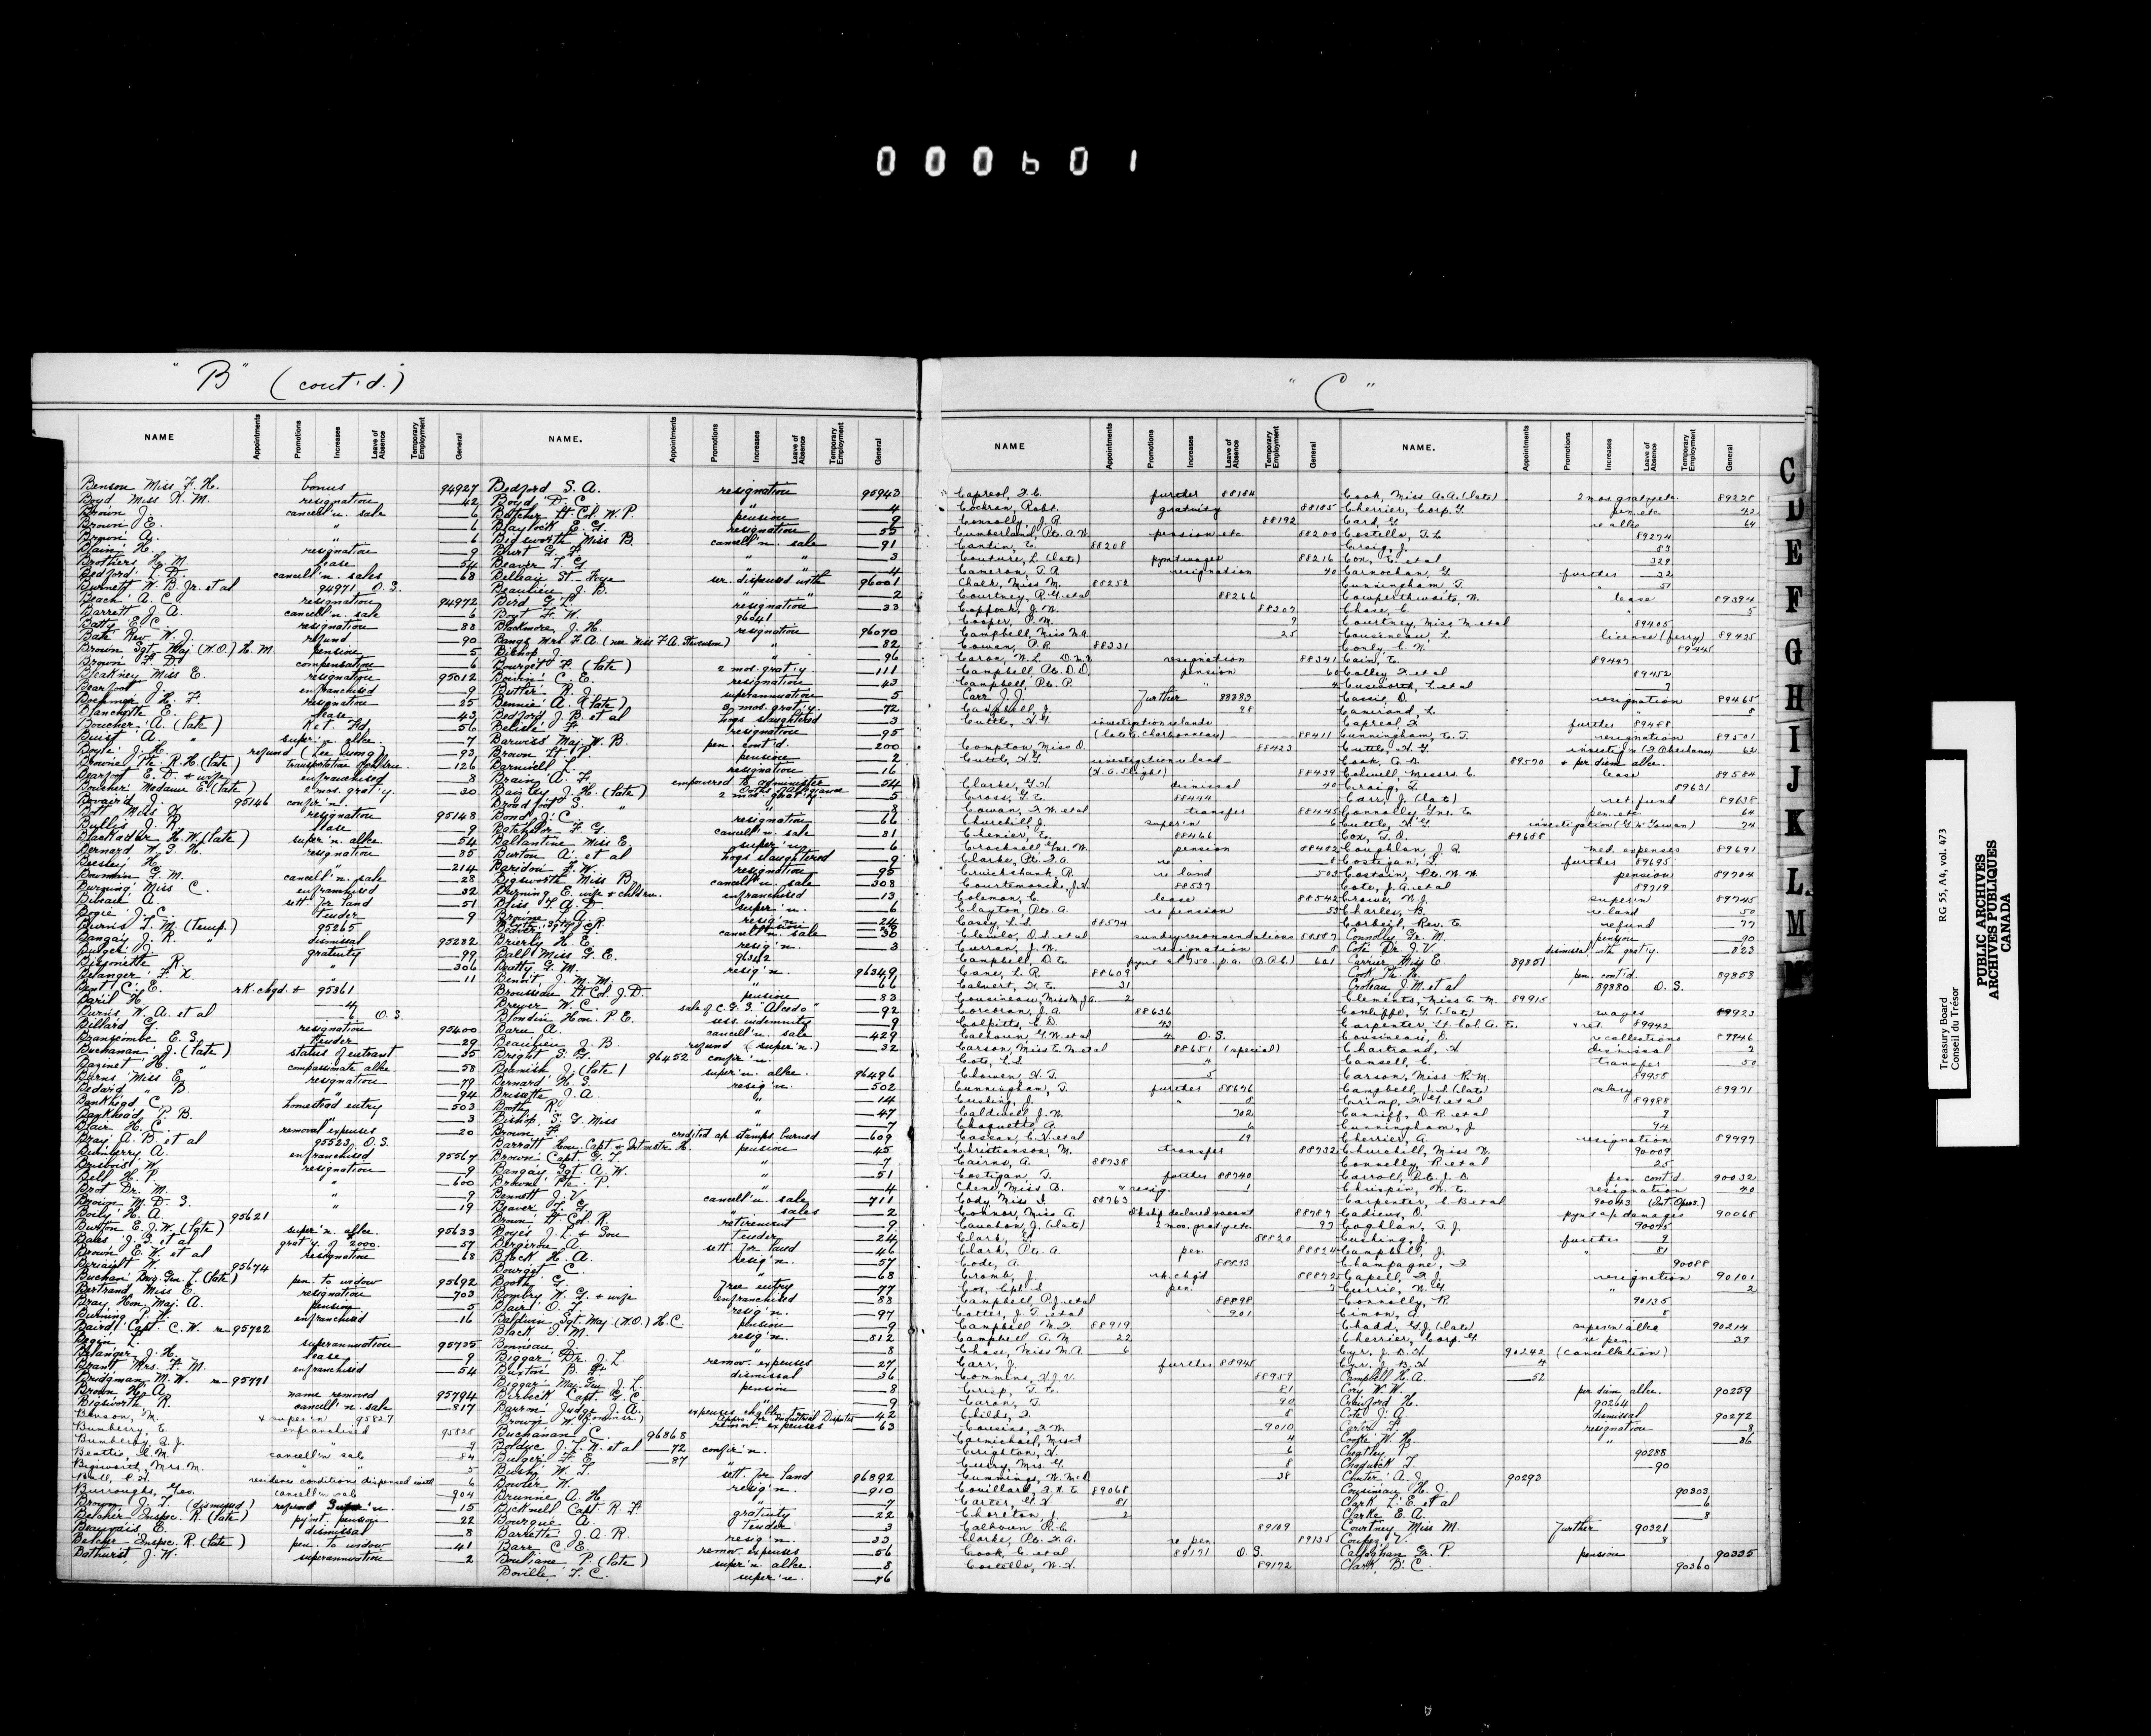 000601
"B" (cont'd.)
NAME Appointments Promotions Increases Leave of Absence Temporary Employment General NAME. Appointments Promotions Increases Leave of Absence Temporary Employment General
Benson Miss F. H. bonus 94927
Boyd Miss K. M. resignation 42
Brown J. cancell'n. sale 6
Brown E. " 6
Brown A. " 6
Blain H. resignation 9
Brothers H. M. lease 54
Bedford L. D. cancell'n. sales 68
Burnett W. B. Jr. et al 94971 O.S.
Beach A. C. resignation 94972
Barrett J. A. cancell'n sale 6
Batty E. C. resignation 88
Bate Rev. W. J. refund 90
Brown Sgt. Maj. (W.O.) H. M. pension 5
Brown F. D. compensation 6
Bleakney Miss E. resignation 95012
Bearfoot J. enfranchised 9
Boehmer H. F. resignation 25
Blanchette E. lease 43
Boucher A. (late) ret. fd. 56
Buist A. " super'n. allce. 7
Boyle J. H. refund (Lee Quong) 93
Browne Pte. R. H. (late) transportation of children. 126
Bearfoot E. D. & wife enfranchised 8
Boucher Madame E. (late) 2 mos. grat'y. 30
Bovaird J. 95146 confir'n.
Bott Miss H. resignation 95148
Byllis J. R. lease 9
Blackader H. W. (late) super'n. allce. 54
Bernard W. G. H. resignation 85
Beesley H. " 214
Bowman G. M. cancell'n. sale 28
Burning Miss C. enfranchised 32
Bureau A. sett. for land 51
Bogie J. C. tender 9
Burns T. M. (Temp.) 95265
Bangay J. R. " dismissal 95282
Burger J. gratuity 99
Bissonette R. " 306
Belanger F. X. " 11
Bent C. E. r.k. chgd. + 95361
Baril H. 4
Burns W. A. et al 6 O.S.
Billard G. resignation 95400
Branscombe E. S. tender 29
Buchanan J. (late) status of entrant 35
Bazinet H. " compassionate allce. 58
Burns Miss E. resignation 79
Bedard " B. " 94
Bankhead C. homestead entry 503
Bankhead P. B. " 3
Blair H. C. removal expenses 20
Bray A. B. et al 95523 O.S.
Bumberry A. enfranchised 95567
Brisbois W. resignation 9
Bell H. P. " 600
Brot Dr. M. " 9
Brown M. D. S. " 19
Boily H. A. 95621
Burton E. J. W. (late) super'n. allce. 95633
Bates J. S. et al grat'y of 2000. 57
Brown E. W. et al resignation 68
Buchan Brig. Gen. L. (late) pen. to widow 95692
Bertrand Miss E. resignation 703
Bray Hon. Maj. A. pension 5
Burning P. H. enfranchised 16
Baird Capt. C. W. 95722
Begin L. superannuation 95735
Belanger J. H. lease 9
Brant Mrs. F. M. enfranchised 54
Bridgman M. W. 95771
Brown H. A. name removed 95794
Bigsworth R. cancell'n. sale 817
Benson, M. & super'n 95827
Bumberry, E. enfranchised 95828
Bumberry, A. J. " 9
Beattie, G. M. cancell'n sale 84
Bigsworth, Mrs. M. " " 5
Ball, P. H. residence conditions dispensed with 6
Burroughs, Geo. cancell'n sale 904
Brown J. T. (dismissed) refund Super'n. 15
Belcher Inspec. R. (late) pay'mt. pension 22
Beauvais, E. dismissal 8
Belcher Inspec. R. (late) pen. to widow 41
Bathurst, J. W. superannuation 2
Bedford S. A. resignation 95943
Boyd D. C. " 4
Butcher Lt. Col. W. P. pension 9
Blaylock E. G. resignation 55
Bigsworth Miss B. cancell'n. sale 91
Burt G. F. " " 3
Beaver T. G. " " 4
Belleau St. Foye ser. dispensed with 96001
Beaulieu J. B. " " 2
Bird G. L. resignation 33
Bogt F. W. 96041
Blackmore, J. H. resignation 96070
Bangs Mrs. F. A. (nee Miss F. A. Stevenson) " 82
Bishop J. " 96
Bourget F. (late) 2 mos. grat'y. 111
Boivin C. E. resignation 43
Butler R. J. superannuation 5
Bennie A. (late) 2 mos. grat'y. 72
Bedford J. B. et al hogs slaughtered 3
Belisle F. resignation 95
Barwiss Maj. W. B. pen. cont'd. 200
Brown H. P. pension 2
Barnwell L. resignation 16
Brain A. F. empowered to administer Oaths Allegiance 54
Baintey J. H. (late) 2 mos. grat'y. 5
Broadfoot S. " " 8
Bond J. C. resignation 66
Batchelor F. G. cancell'n. sale 81
Ballantine Miss E. super'n. 6
Burton A. et al hogs slaughtered 9
Baridon F. W. resignation 95
Bigsworth Miss B. cancell'n. sale 308
Burning E. wife & childrn. enfranchised 13
Bliss L. A. D. super'n. 6
Browne L. A. resig'n. 24
Brierly H. E. cancell'n. sale 30
Ball Miss G. E. resig'n. 3
Beatty G. M. 96342
Benoit J. M. M. resig'n. 96349
Brousseau Lt. Col. J. D. " 66
Brewer W. C. pension 83
Blondin Hon. P. E. sale of C.G.S. "Alcedo" 92
Baru A. sess. indemnity 9
Beaulieu J. B. cancell'n. sale 429
Bright S. G. refund (super'n.) 32
Beamish J. (late) 96452 confir'n.
Bernard H. S. super'n. allce. 96496
Brisette J. A. resig'n. 502
Booth R. " 14
Bishop T. G. Miss " 47
Brown F. " 7
Barratt Hon. Capt. & Qrtmstr. H. credited a/c stamps burned 609
Brown Capt. G. T. pension 45
Bangay Sgt. A. W. " 7
Browne Pte. P. " 51
Bennett J. V. " 4
Beaver T. G. cancell'n. sale 711
Brown Lt. Col. R. " sales 2
Boyes J. L. & Son retirement 9
Bergeron A. tender 24
Black H. A. sett. for land 46
Bourget C. resig'n. 57
Booth G. " 68
Bomby W. G. & wife Free entry 77
Blair O. T. enfranchised 88
Baldwin Sgt. Maj. (W.O.) H. C. resig'n. 97
Black F. M. pension 9
Bonneau J. resig'n. 812
Biggar Dr. J. L. " 8
Burton B. H. remov. expenses 27
Biggar Maj. Gen. J. L. dismissal 36
Birbeck Capt. G. C. pension 8
Barron Judge J. A. " 9
Brown W. expenses chgble. to Appro. for Industrial Disputes 42
Buchanan C. 96868 remov. expenses 63
Bolduc J. L. N. et al 72 confir'n.
Bulger F. E. 87 "
Bush W. T. sett. for land 96892
Bowler W. resig'n. 910
Brunne A. H. " 7
Bicknell Capt. R. F. gratuity 22
Bourque A. tender 3
Barrette J. A. R. resig'n. 33
Barr C. E. remov. expenses 56
Bouliane P. (late) super'n. allce. 8
Boville T. C. super'n. 76
"C"
NAME Appointments Promotions Increases Leave of Absence Temporary Employment General NAME. Appointments Promotions Increases Leave of Absence Temporary Employment General
Capreol, F. C. further 88184
Cochran, Robt. gratuity 88185
Connolly, J. R. 88192
Cumberland, Pte. A. W. pension etc. 88200
Cantin, E. 88208
Couture, L. (late) pymt wages 88216
Cameron, T. A. resignation 40
Chalk, Miss M. 88252
Courtney, R. G. et al 88266
Coppock, J. N. 88307
Cooper, P. M. 9
Campbell, Miss M. A. 25
Cowan, P. R. 88331
Caron, W. L. resignation 88341
Campbell, Pte. D. D. pension 60
Campbell, Pte. P. " 4
Carr J. J. Further 88383
Campbell, J. 98
Cuttle, H. G. investigation re lands (late G. Charbonneau) 88411
Compton, Miss O. 88423
Cuttle, H. G. investigation re land (H. A. Slight) 88439
Clarke, G. H. dismissal 40
Cross, G. E. 88444
Cowan, F. W. et al transfer 88445
Churchill J. super'n 6
Chenier, E. 88466
Cracknell, Mrs. W. pension 88482
Clarke, Pte. F. A. re " 8
Cruickshank, R. re land 503
Courtemanche, J. H. 88537
Coleman, C. lease 88542
Clayton, Pte. A. re pension 55
Casey, L. L. 88574
Clewlo, O. L. et al sundry recommendations 88587
Curran, J. N. resignation 8
Campbell, D. E. pymt at 750. p.a. (O.A.C.) 601
Cane, L. R. 88609
Calvert, H. E. 31
Cousineau, Miss M. J. A. 2
Corcoran, J. A. 88636
Colpitts, C. D. 43
Calhoun G. W. et al 4 O.S.
Carson, Miss E. M. et al 88651 (special)
Cote, L. L. 4
Chowen, H. T. 5
Cunningham, T. further 88696
Cushing, J. " 8
Caldwell J. N. 702
Choquette A. 6
Casson, C. V. et al 19
Christianson, M. transfer 88732
Cairns, A. 88738
Costigan, T. further 88740
Chene Miss B. & resig. 1
Cody Miss I. 88763
Connor, Miss A. O'ship declared vacant 88787
Cauchon, J. (late) 2 mos. grat'y etc. 93
Clark, G. 88820
Clark, Pte. A. pen. 88824
Code, A. 88833
Cromb, J. r.k. chgd 88872
Cox, Cpl. S. pen. 7
Campbell, P. J. et al 88898
Cotter, J. T. et al 901
Campbell M. F. 88919
Campbell A. M. 22
Chase, Miss M. A. 6
Carr, J. further 88945
Commins, H. J. V. 88959
Crisp, T. C. 81
Caron, T. 90
Childs, F. 8
Cousins, F. M. 9010
Carmichael, Miss I. 4
Crighton, H. 6
Curry, Mrs. G. 8
Cummings, W. McD. 38
Couillard, F. X. E. 89068
Carter, G. H. 81
Choreton, J. 2
Calhoun P. C. 89109
Clarke, Pte. F. A. re pen. 89135
Cook, C. et al 89171 O.S.
Costello, W. H. 89172
Cook, Miss A. A. (late) 2 mos. grat'y etc. 89228
Cherrier, Corp. G. pen. etc. 42
Card, G. re allce 64
Costello, T. L. 89274
Craig, J. 83
Cox, E. et al 329
Carnochan, G. further 32
Cunningham T. " 57
Cowperthwaite, W. lease 89394
Chase, C. " 5
Courtney, Miss M. et al 89405
Cousineau, L. license (ferry) 89425
Conly, C. N. 89445
Cain, E. 89447
Colley F. et al 89452
Cusworth, L. et al 7
Cassie, D. resignation 89465
Camirand, L. " 8
Capreol, F. further 89488
Cunningham, E. T. resignation 89501
Cuttle, H. G. 62
Cook, A. N. 89570 + per diem allce.
Colwell, Messrs. C. lease 89584
Craig, T. 89631
Carr, J. (late) ret. fund 89638
Connolly Mrs. E. pen. etc. 64
Cuttle, H. G. investigation (G. McGowan) 74
Cox, T. O. 89688
Coughlan, J. R. med. expenses 89691
Costigan, T. further 89695
Costain, Pte. W. H. pension 89704
Cote, J. A. et al 89719
Crowe, W. J. super'n 89745
Charles, B. re land 50
Corbeil, Rev. E. refund 77
Connolly Gr. M. pension 90
Coté Dr. J. V. dismissal with grat'y. 823
Carrier Miss E. 89851
Cook Pte. H. pen. cont'd. 89858
Croteau J. M. et al 89880 O.S.
Clements, Miss C. M. 89915
Conliffe, G. (late) wages 89923
Carpenter, Lt. Col. A. E. + ret. 89942
Cousineau, D. re collections 89946
Chartrand, H. dismissal 7
Cansell, C. transfer 50
Carson, Miss R. M. 89958
Campbell, J. S. (late) salary 89971
Crimp, F. G. et al 89988
Canniff, D. R. et al 9
Cunningham, J. 94
Cherrier, A. resignation 89997
Churchill, Miss N. 90009
Connolly, R. et al 25
Carroll, Pte. J. D. pen. cont'd. 90032
Chrispin, W. E. resignation 40
Carpenter, C. B. et al 90043 (Int. Opns.)
Cadieux, O. pymt a/c damages 90068
Coghlan, T. J. 90075
Cushing, J. further 9
Campbell, J. " 81
Champagne, F. 90088
Capell, F. J. resignation 90101
Currie, W. G. " 2
Connolly, R. 90135
Cimon, A. 8
Chadd, G. J. (late) super'n allce 90214
Cherrier, Corp. G. re pen. 39
Cyr, J. B. H. 90242 (cancellation)
Cyr, J. B. H. 4
Campbell H. A. 52
Cory W. W. per diem allce. 90259
Crawford H. 90264
Cote J. A. dismissal 90272
Carter F. resignation 8
Cooke W. H. " 86
Cheatley T. 90288
Chadwick T. 90
Center A. J. 90293
Cousineau H. J. 90303
Clark L. E. et al 6
Clarke E. A. 8
Courtney Miss M. Further 90321
Couper V. " 3
Callaghan Gr. P. pension 90335
Clark, B. C. 90360
C
D
E
F
G
H
I
J
K
L
M
Treasury Board
Conseil du Trésor
RG 55, A4, vol. 473
PUBLIC ARCHIVES
ARCHIVES PUBLIQUES
CANADA